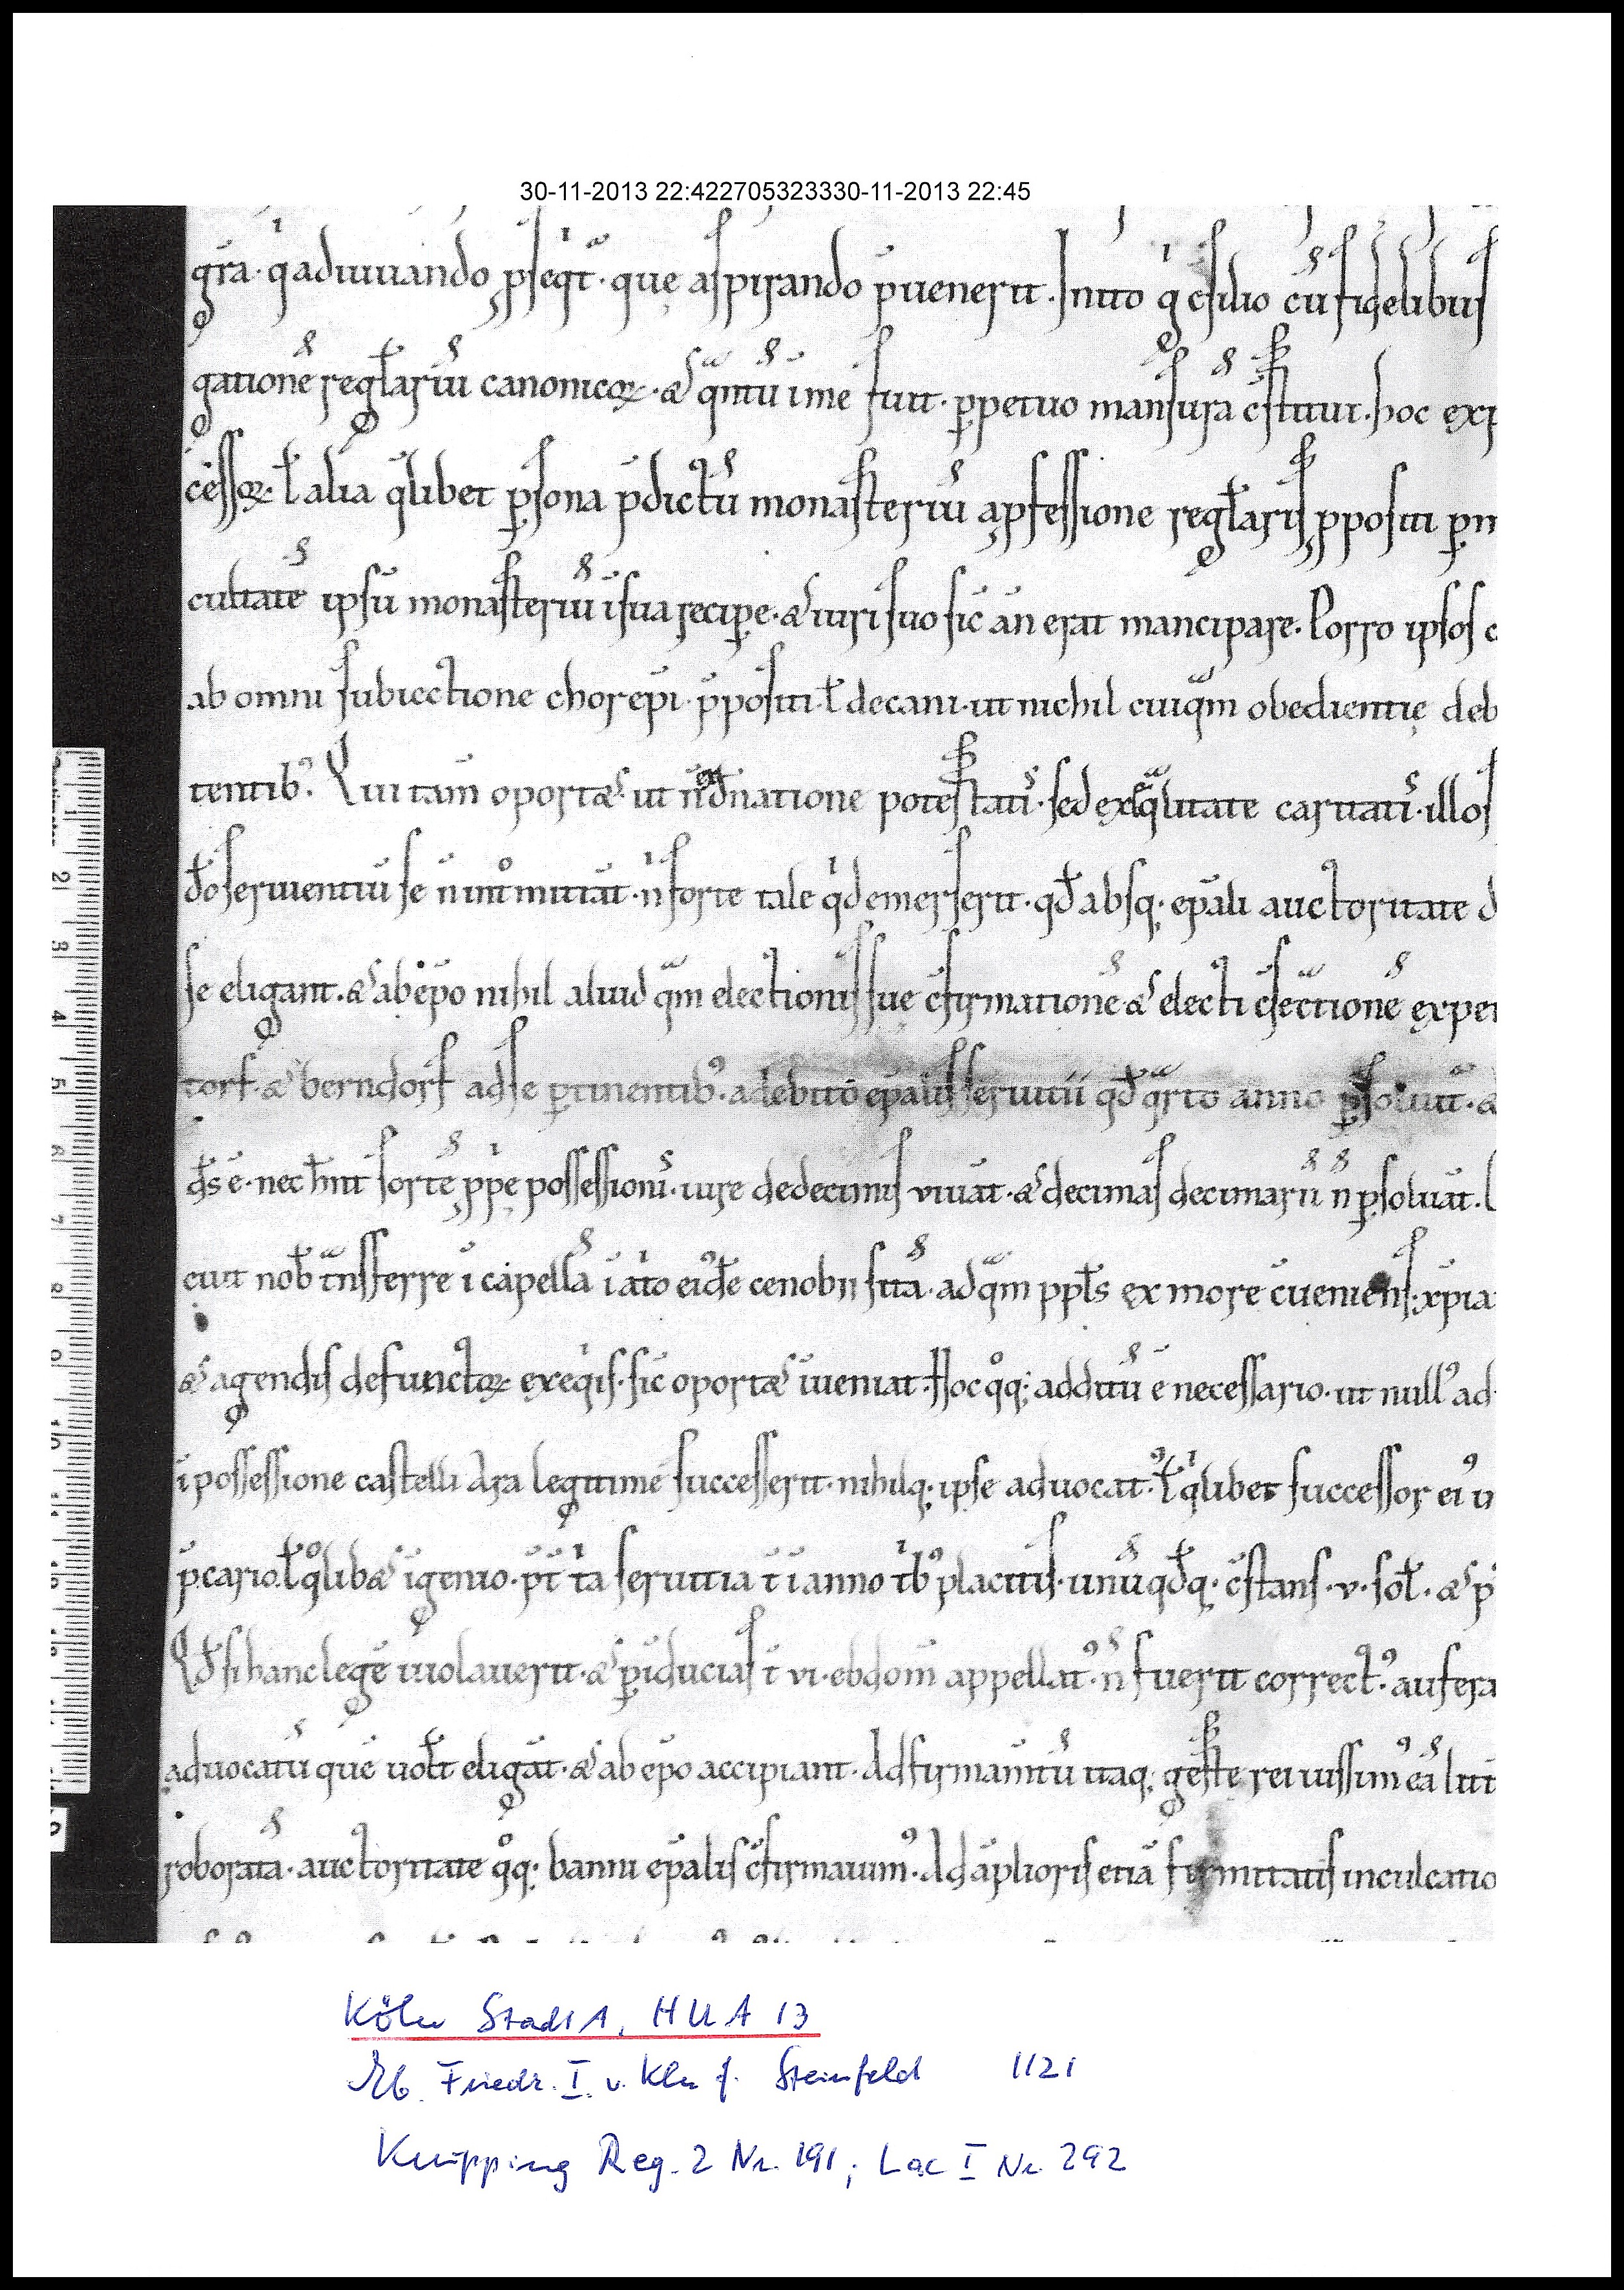 30-11-2013 22:422705323330-11-2013 22:45
gr̄a · q adiuuando ꝓseqͥt̄ · que aspirando p̄uenerit . Inito gͥ c̄silio cū fidelibus
gatione̅ regl̄ariū canonicoꝝ · & qᵃntū ī me fuit · ꝑpetuo mansura c̄stitui . hoc exp
cessoꝝ · ł alia q̄libet ꝑsona p̄dictū monasteriū a ꝓfessione regl̄aris ꝓpositi ꝑm
cultate̅ ipsū monasteriū ī sua recipe · & iuri suo sic̄ an̄ erat mancipare . Porro ipsos c
ab omni subiectione chorep̄i · p̄positi · ł decani · ut nichil cuiqᵃm obedientię deb
tentibꝰ . Qui tam̄ oport& ut n̄ ex dn̄atione potestatis · sed ex eqᵃlitate caritatis · illos
d̄o seruientiū se n̄ intͦmittāt · n̄ forte tale qͥd emerserit · qd̄ absq; ep̄ali auctoritate d
se eligant . & ab ep̄o nihil aliud qᵃm electionis sue c̄firmatione̅ & electi c̄secratione̅ expe
torf · & berndorf ad se ꝑtinentibꝰ · a debito ep̄alis seruitii qd̄ qᵃrto anno ꝑsoluit · &
ds̄ ē · nec hn̄t sorte̅ ꝓpͥe possessionis · iure de decimis viuāt · & decimas decimarū n̄ ꝑsoluāt .
cuit nob̄ tᵃnsferre ī capellā ī atͥo eiꝰd̄e cenobii sitā · ad qᵃm ppl̄s ex more c̄ueniens · xp̄ia
& agendis defunctoꝝ exeqͥis · sic oport& īueniat . Hoc qͦq; additū ē necessario · ut nullꝰ ad
ī possessione castelli Ara legitime successerit · nihilq; ipse aduocatꝰ · ł qͥlibet successor eiꝰ
p̄cario · ł qͦlib& īgenio · p̄t tͥa seruitia ī anno tͥbꝰ placitis · unū qd̄q; c̄stans · v · sol̄ · & p
Qd̄ si hanc lege̅ uiolauerit · & ꝑ īducias ī vi · ebdom̄ appellatꝰ · n̄ fuerit correctꝰ · aufera
aduocatū que̅ uol̄t eligāt · & ab ep̄o accipiant . Ad firmam̄tū itaq; geste rei iussimꝰ eā litt
roborata̅ · auctoritate qͦq; banni ep̄alis c̄firmauimꝰ . Ad āplioris etiā firmitatis inculcatio
Köln StadtA, HUA 13
Eb. Friedr. I. v. Kln f. Steinfeld 1121
Knipping Reg. 2 Nr. 191; Lac I Nr. 292